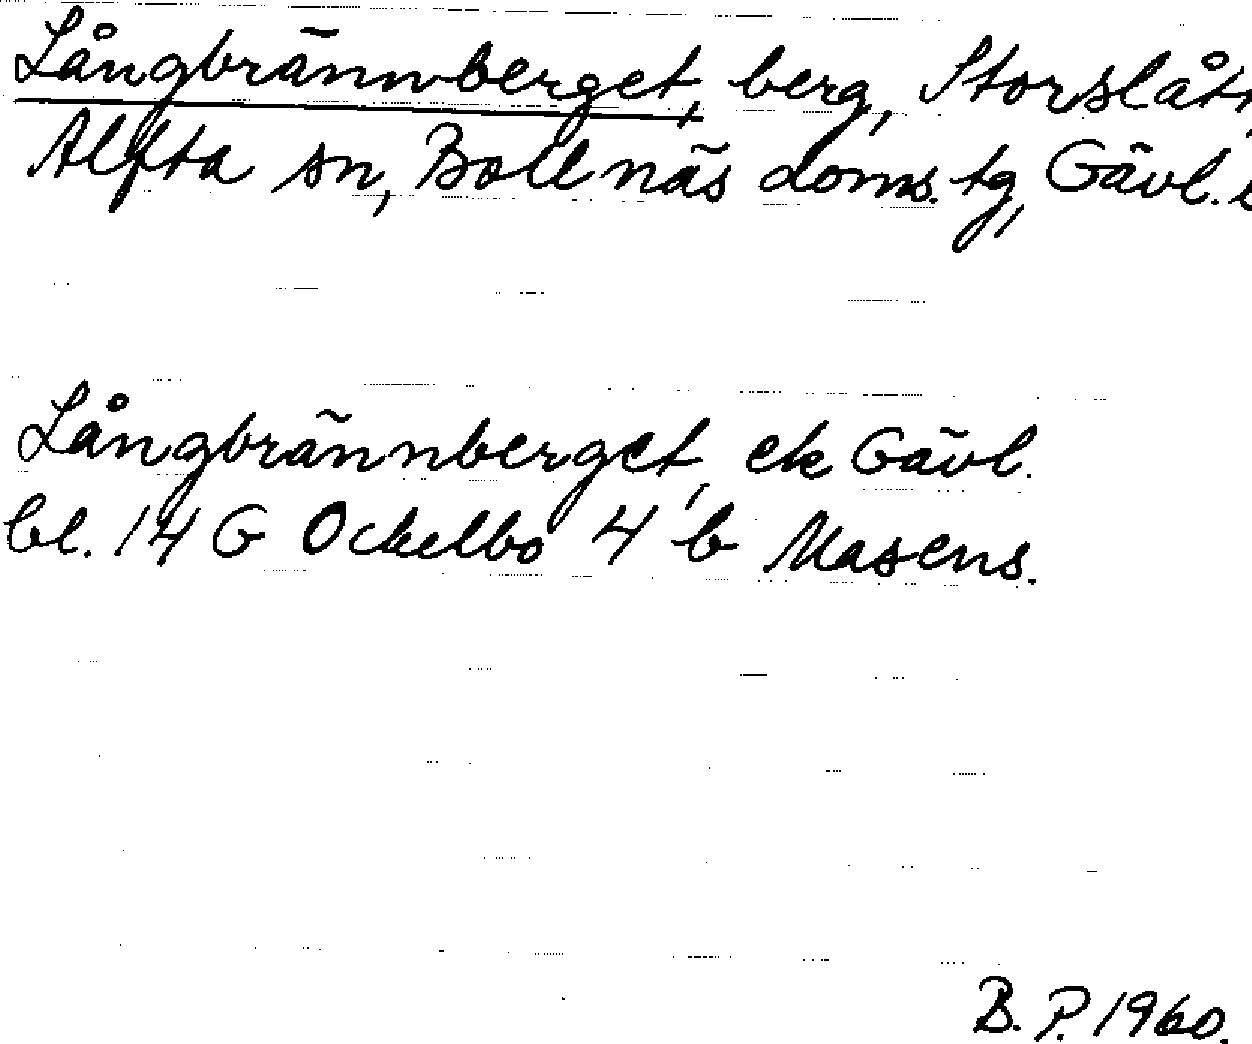 Långbrännberget, berg, Storslått
Alfta sn, Bollnäs doms. tg, Gävl.
Långbrännberget, ek Gävl.
bl. 14 G Ockelbo 4 b Masens.
B. P. 1960.